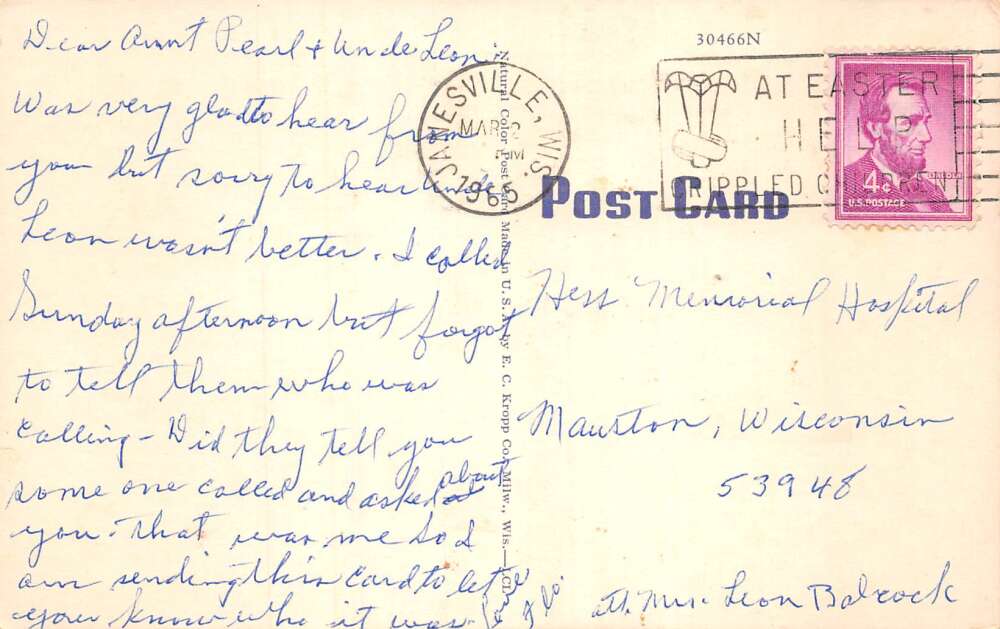 Dear Aunt Pearl & Uncle Leon:
Was very glad to hear from
you but sorry to hear Uncle
Leon wasn't better. I called
Sunday afternoon but forgot
to tell them who was
calling - Did they tell you
some one called and asked about
you - that was me so I
am sending this card to let
you know who it was.
Natural Color Post Card Made in U.S.A. by E. C. Kropp Co., Milw., Wis.
30466N
JANESVILLE, WIS.
MAR
PM
1965
AT EASTER
HELP
CRIPPLED CHILDREN
LINCOLN
4¢
U.S. POSTAGE
POST CARD
Hess Memorial Hospital
Mauston, Wisconsin
53948
att. Mrs. Leon Babcock